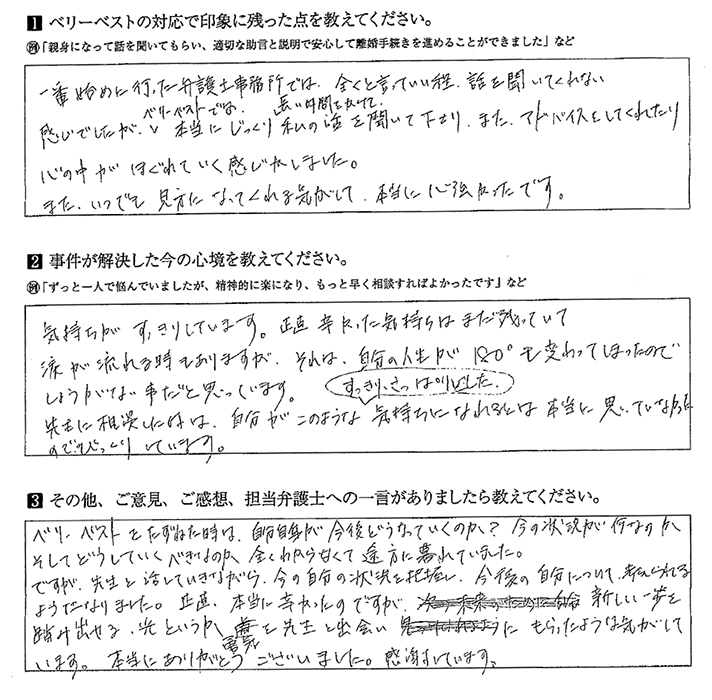 1 ベリーベストの対応で印象に残った点を教えてください。
例「親身になって話を聞いてもらい、適切な助言と説明で安心して離婚手続きを進めることができました」など
一番始めに行った弁護士事務所では、全くと言っていい程、話を聞いてくれない
ベリーベストでは、長い時間をかけて、
感じでしたが、本当にじっくり私の話を聞いて下さり、また、アドバイスをしてくれたり
心の中がほぐれていく感じがしました。
また、いつでも見方になってくれる気がして、本当に心強かったです。
2 事件が解決した今の心境を教えてください。
例「ずっと一人で悩んでいましたが、精神的に楽になり、もっと早く相談すればよかったです」など
気持ちがすっきりしています。正直辛かった気持ちはまだ残っていて
涙が流れる時もありますが、それは、自分の人生が180°も変わってしまったので
しょうがない事だと思っています。すっきり、さっぱりした、
先生に相談した時は、自分がこのような気持ちになれるとは本当に思っていなかった
のでびっくりしています。
3 その他、ご意見、ご感想、担当弁護士への一言がありましたら教えてください。
ベリーベストをたずねた時は、自分自身が今後どうなっていくのか?今の状況が何なのか
そしてどうしていくべきなのか、全くわからなくて途方に暮れていました。
ですが、先生と話していきながら、今の自分の状況を把握し、今後の自分について、考えられる
ようになりました。正直、本当に辛かったのですが、新しい一歩を
踏み出せる、光というか勇気を先生と出会いにもらったような気がして
います。本当にありがとうございました。感謝しています。